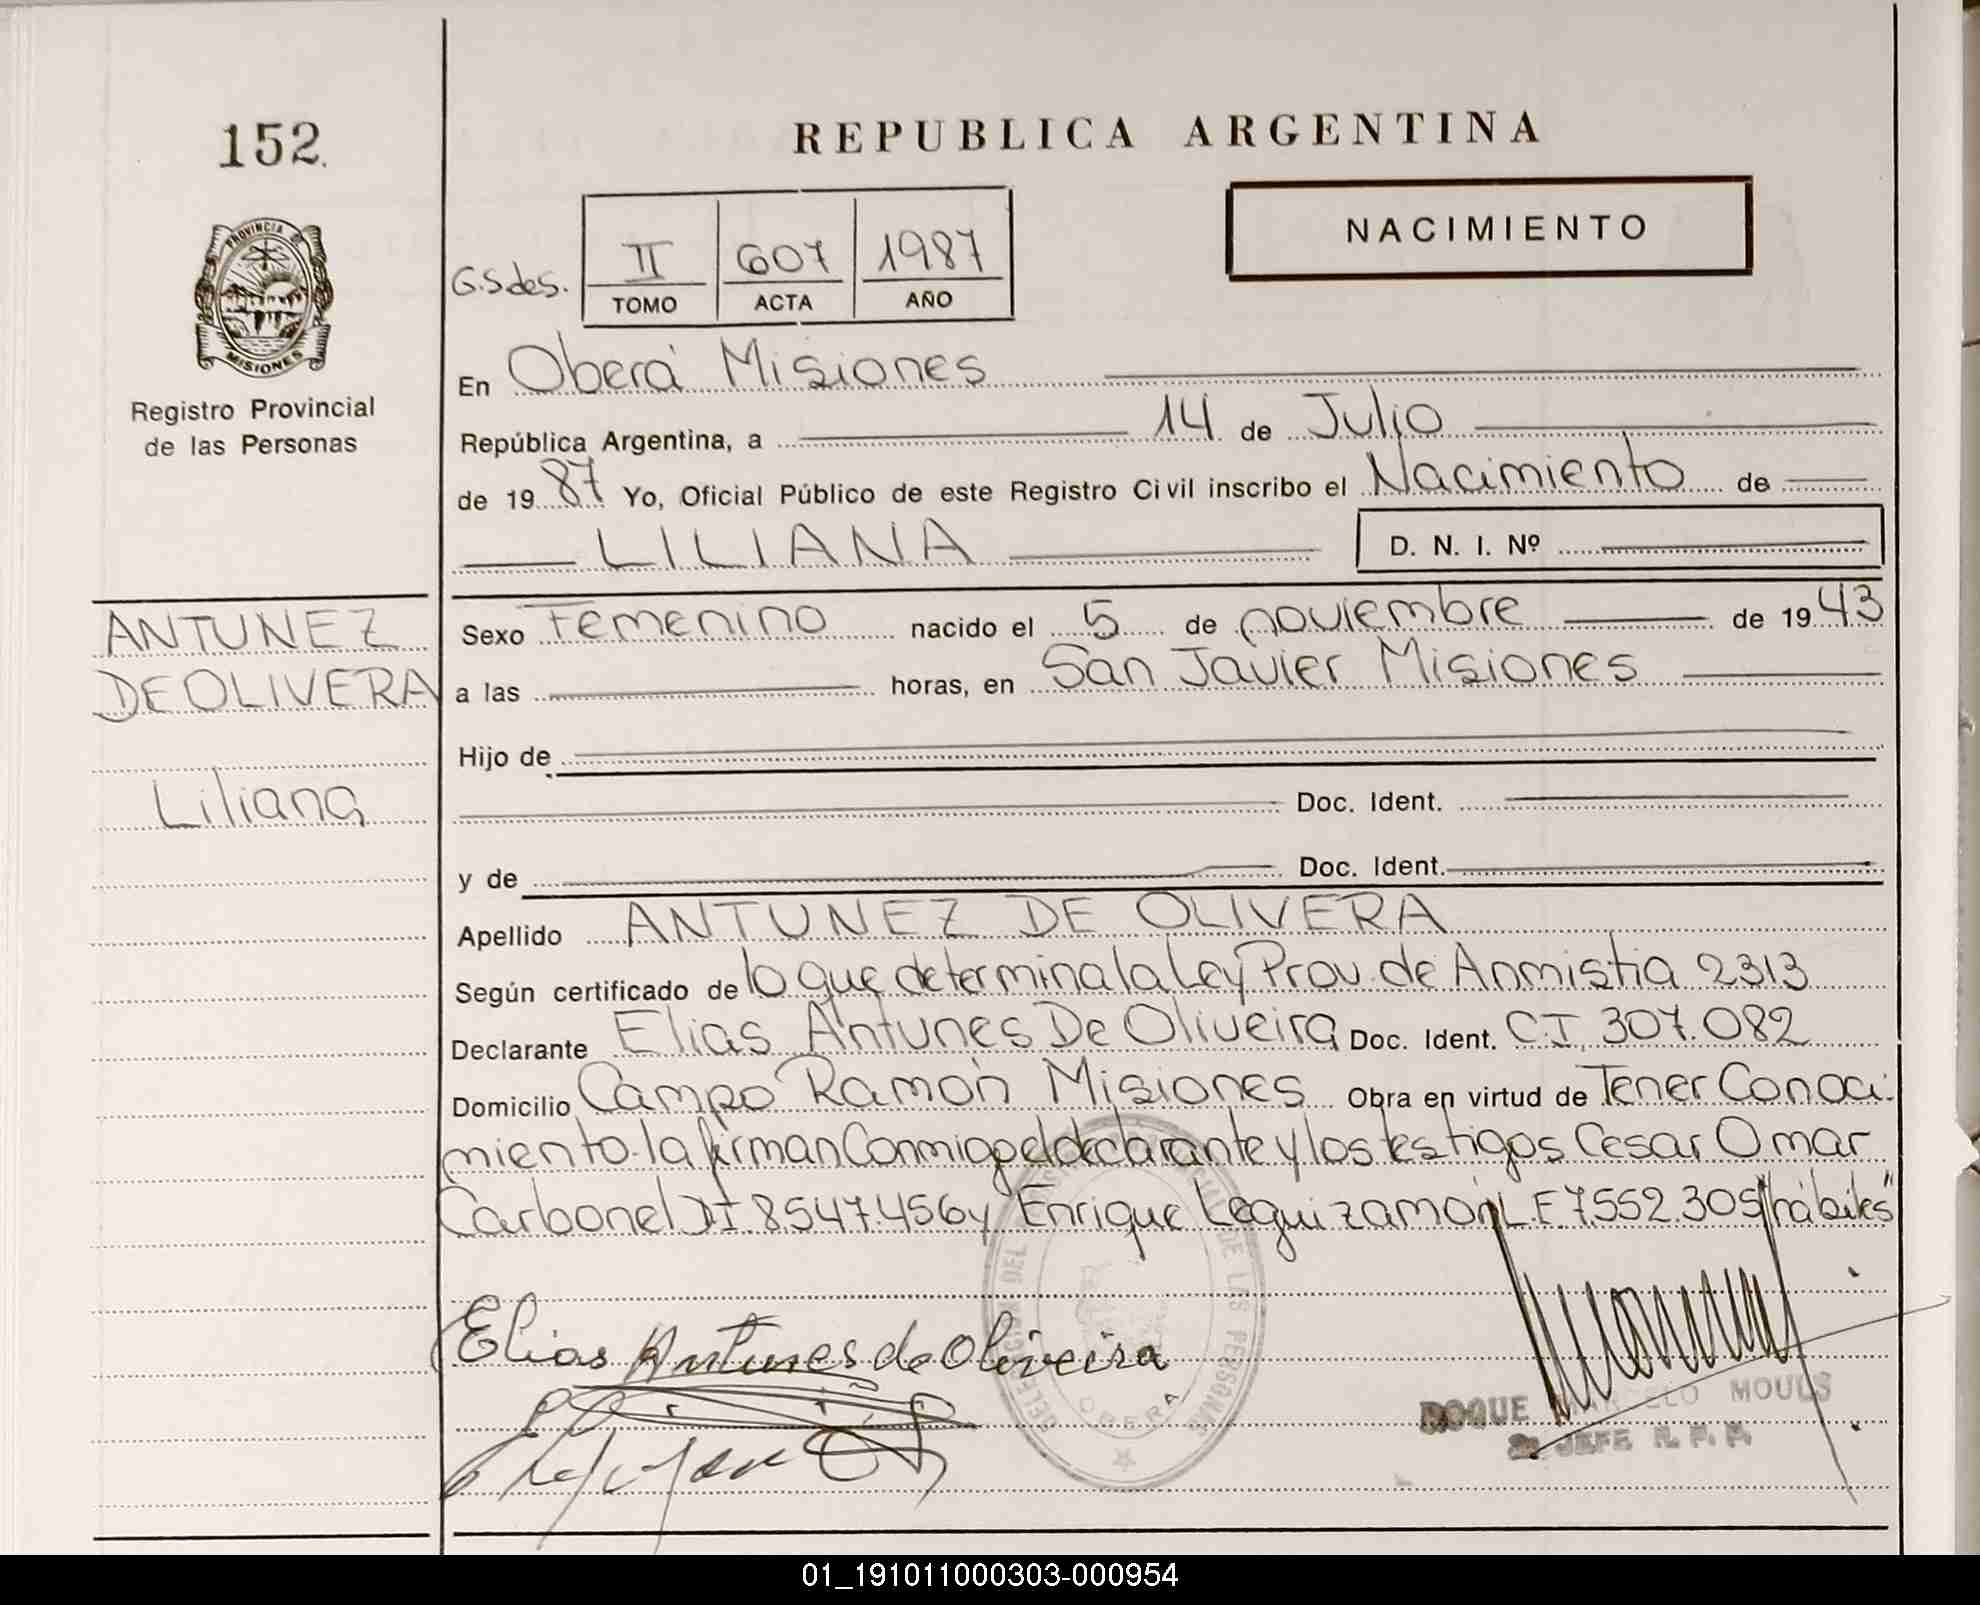 152.
REPUBLICA ARGENTINA
PROVINCIA DE
MISIONES
Registro Provincial
de las Personas
NACIMIENTO
G.S des.
II 607 1987
TOMO ACTA AÑO
En Oberá Misiones
República Argentina, a 14 de Julio
de 19 87 Yo, Oficial Público de este Registro Civil inscribo el Nacimiento de
LILIANA D. N. I. Nº
ANTUNEZ
DE OLIVERA
Liliana
Sexo Femenino nacido el 5 de noviembre de 19 43
a las horas, en San Javier Misiones
Hijo de
Doc. Ident.
y de Doc. Ident.
Apellido ANTUNEZ DE OLIVERA
Según certificado de lo que determina la Ley Prov. de Anmistia 2313
Declarante Elias Antunes De Oliveira Doc. Ident. C.I. 307.082
Domicilio Campo Ramón Misiones Obra en virtud de Tener Conoci-
miento. la firman Conmigo el declarante y los testigos Cesar Omar
Carbonel DI. 8.547.456 y Enrique Leguizamón L.E 7.552.305 "hábiles"
Elias Antunes de Oliveira
DELEGACION DEL DE LAS PERSONAS
OBERA
ROQUE MARCELO MOULS
2. JEFE R. P. P.
01_191011000303-000954